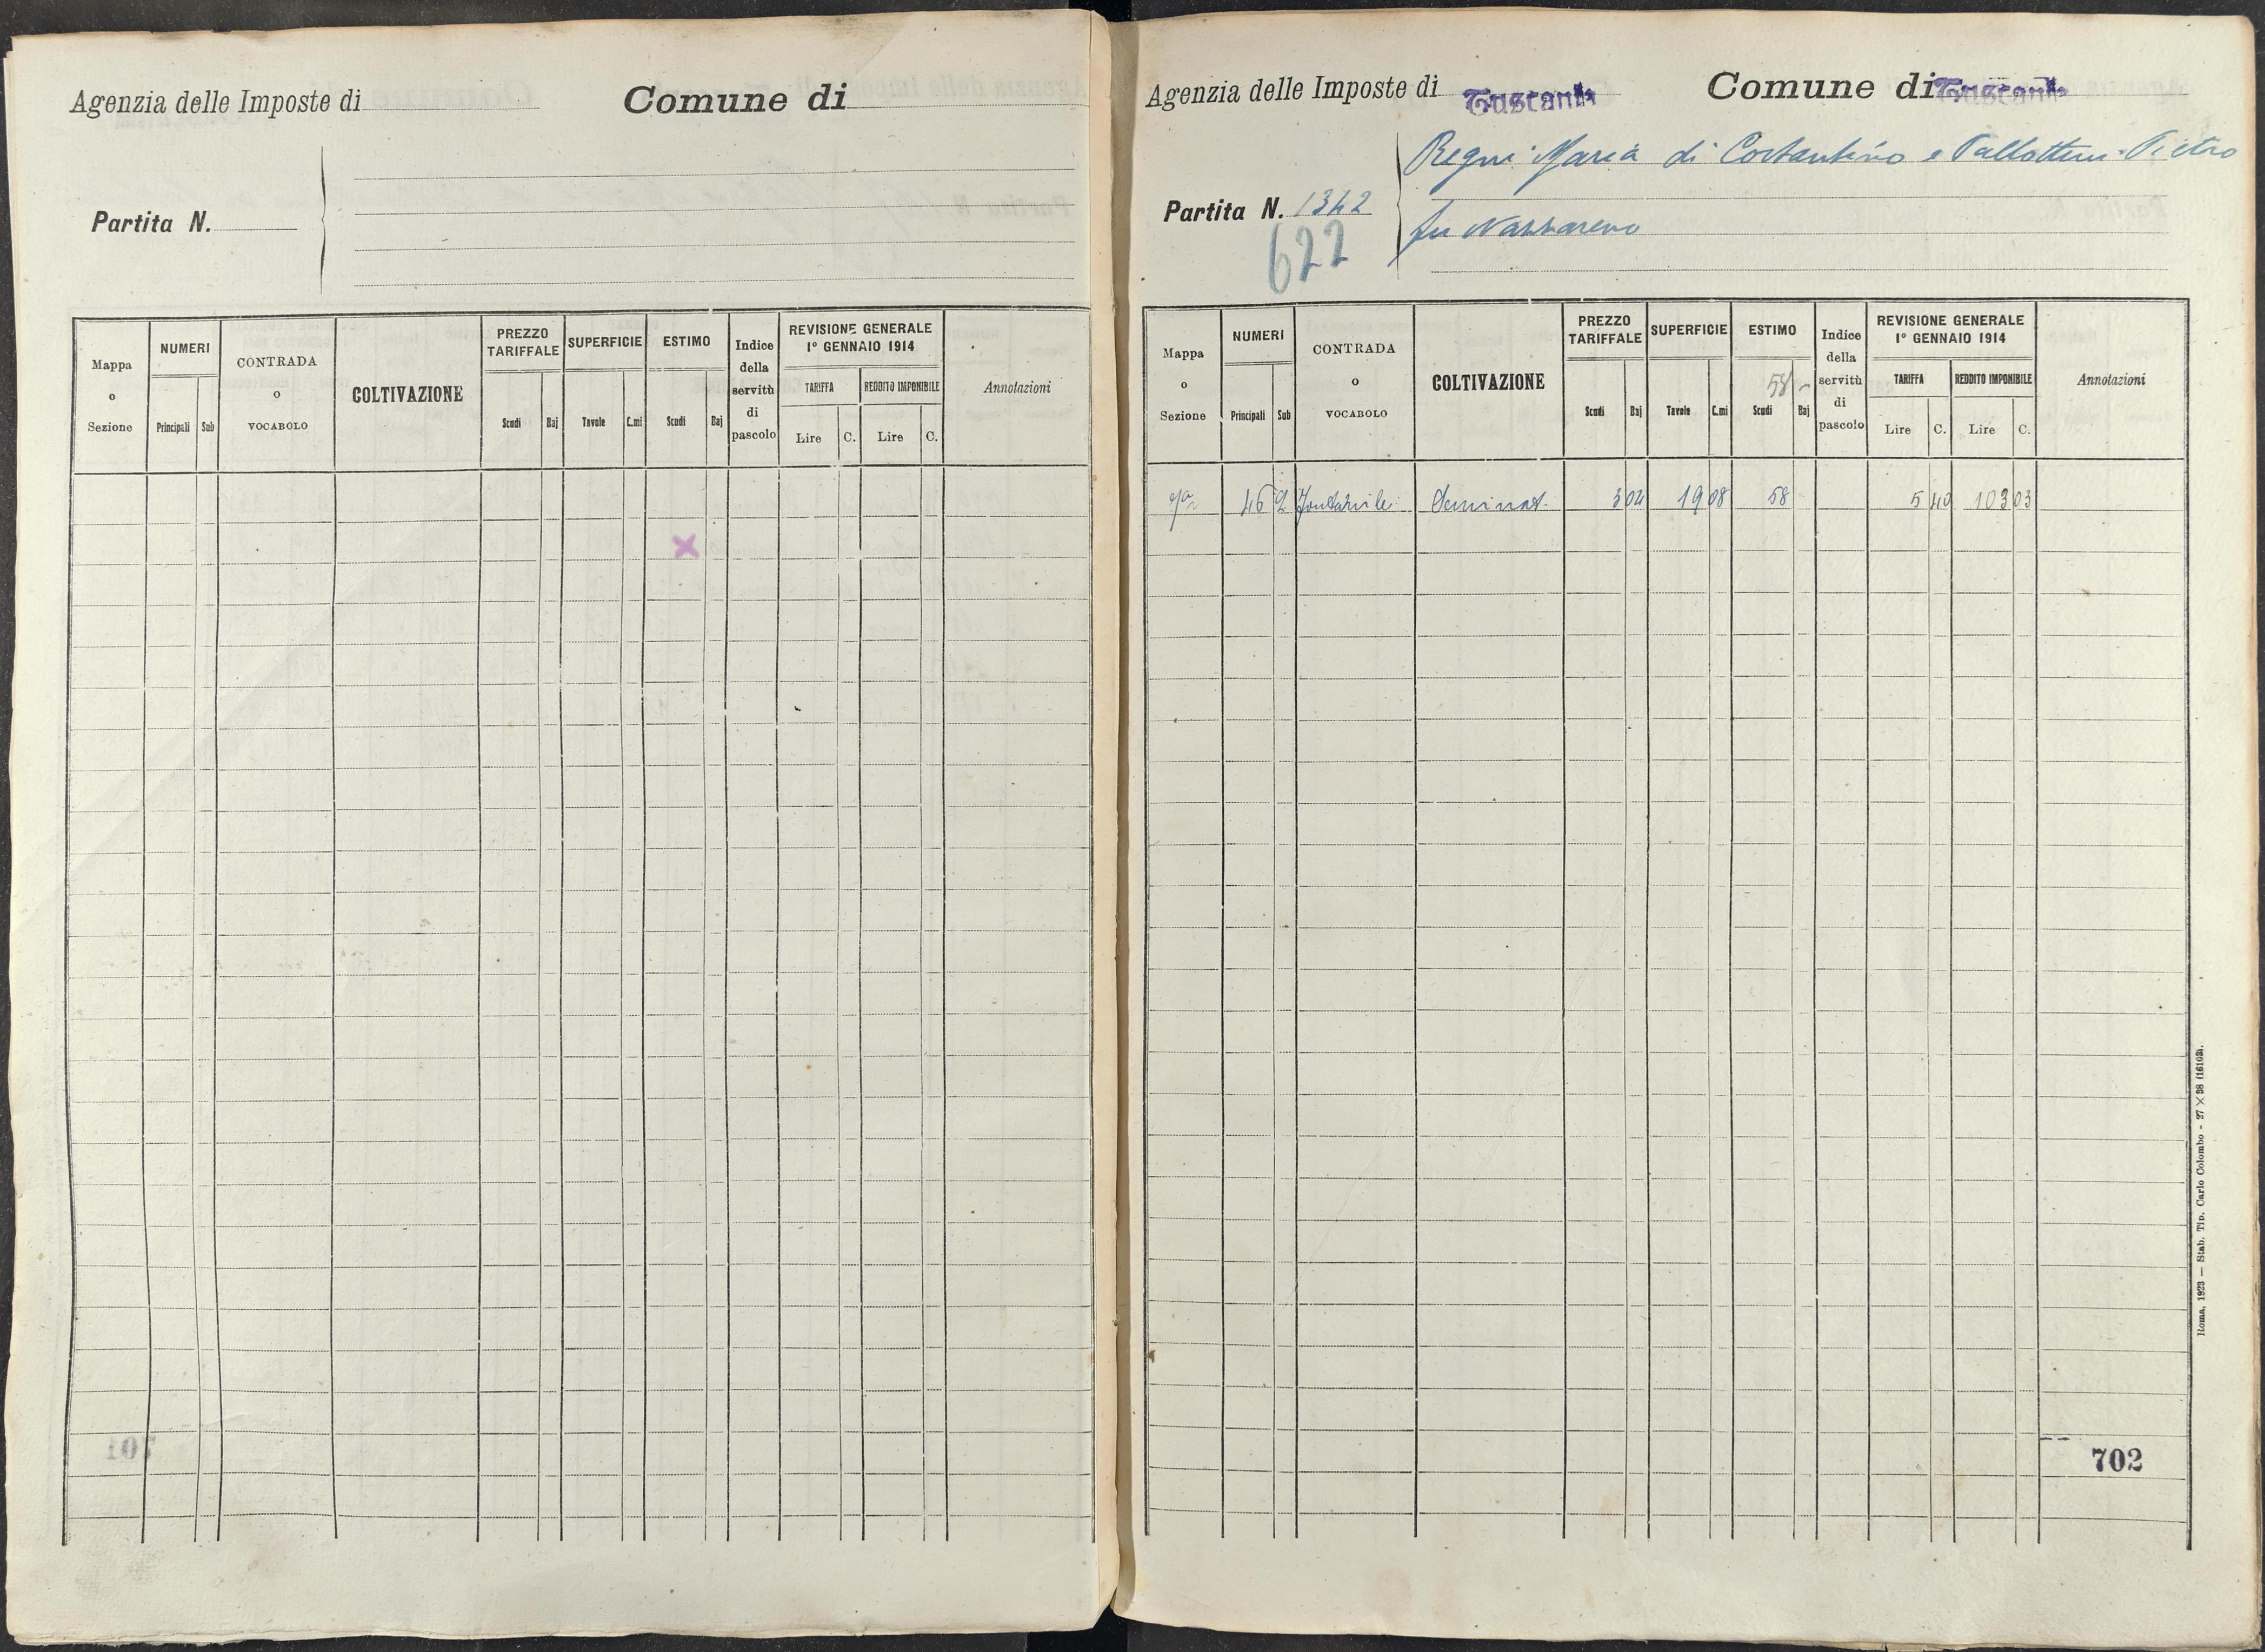 Agenzia delle Imposte di
Comune di
Partita N.
Mappa o Sezione
NUMERI
Principali
Sub
CONTRADA o VOCABOLO
COLTIVAZIONE
PREZZO TARIFFALE
Scudi
Baj
SUPERFICIE
Tavole
C.mi
ESTIMO
Scudi
Baj
Indice della servitù di pascolo
REVISIONE GENERALE
1º GENNAIO 1914
TARIFFA
REDDITO IMPONIBILE
Lire
C.
Lire
C.
Annotazioni
Agenzia delle Imposte di Tuscania
Comune di Tuscania
Regni Maria di Costantino e Pallottini Pietro
Partita N. 1342
fu Nazzareno
622
Mappa o Sezione
NUMERI
Principali
Sub
CONTRADA o VOCABOLO
COLTIVAZIONE
PREZZO TARIFFALE
Scudi
Baj
SUPERFICIE
Tavole
C.mi
ESTIMO
58 -
Scudi
Baj
Indice della servitù di pascolo
REVISIONE GENERALE
1º GENNAIO 1914
TARIFFA
REDDITO IMPONIBILE
Lire
C.
Lire
C.
Annotazioni
46 2 Seminat. 3 04 19 08 58 5 40 103 03
702
Roma, 1923 — Stab. Tip. Carlo Colombo - 27 × 38 (16103).